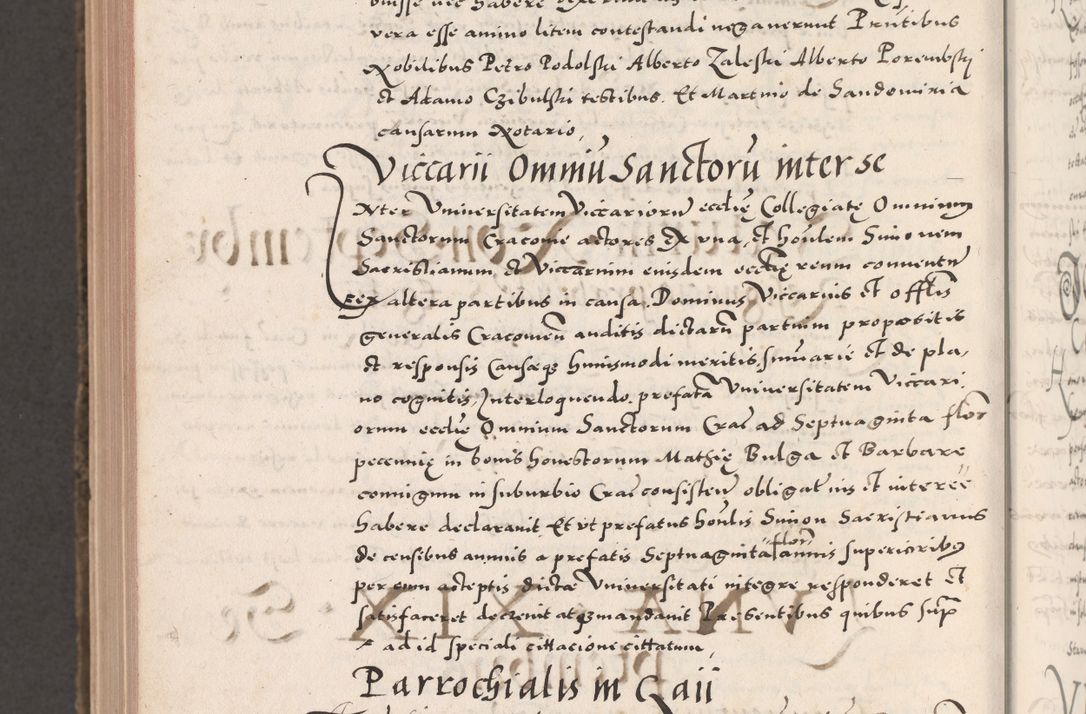 vera esse animo litem contestandi negaverunt Pñtibus
Nobilibus Petro Podolski Alberto Zaleski Alberto Porembski
et Adamo Czibulski testibus. Et Martino de Sandomiria
causarum Notario,
Viccarii Omniũ Sanctorũ inter se
Nter Universitatem Viccariorũ ecclię Collegiatę Omnium
Sanctorum Cracovie actores ex una, et hoñlem Simonem
Sacrestianum et Viccarium eiusdem ecclię reum conventũ
ex altera partibus in causa. Dominus Viccarius et offlis
generalis Cracovieñ auditis dictarũ partium propositis
et responsis Causęq3 huiusmodi meritis, sumarie et de pla,
no cognitis, Interloquendo, prefatã Universitatem Viccari,
orum ecclię Omnium Sanctorum Crac ad Septuaginta flor
pecunię in bonis honestorum Mathię Bulga et Barbare
coniugum in suburbio Crac consisteñ obligat ius et interee
habere declaravit. Et ut prefatus hoñlis Simon Sacristianus
de censibus annuis a prefatis Septuaginta flor annis superioribus
per eum acceptis dictæ Universitati integre responderet et
satisfaceret decrevit atq3 mandavit Presentibus quibus sup
ad id speciali cittacione cittatum,
Parrochialis in Gaii